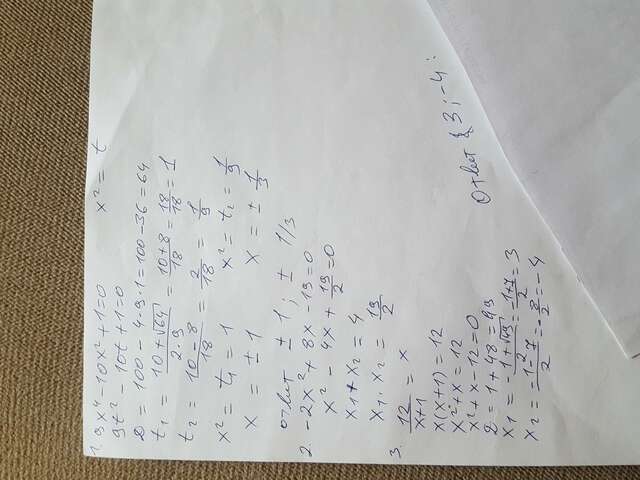 1. 9x⁴-10x²+1=0 x² = t
9t² - 10t + 1 = 0
D = 100 - 4·9·1 = 100 - 36 = 64
t₁ = (10 + √64)/(2·9) = (10+8)/18 = 18/18 = 1
t₂ = (10 - 8)/18 = 2/18 = 1/9
x² = t₁ = 1 x² = t₂ = 1/9
x = ±1 x = ± 1/3
ответ ± 1 ; ± 1/3
2. -2x² + 8x - 19 = 0
x² - 4x + 19/2 = 0
x₁ + x₂ = 4
x₁ · x₂ = 19/2
3. 12/(x+1) = x
x(x+1) = 12
x² + x = 12
x² + x - 12 = 0
D = 1 + 48 = 49
x₁ = (-1 + √49)/2 = (-1+7)/2 = 3
x₂ = (-1-7)/2 = -8/2 = -4
Ответ { 3 ; -4 :